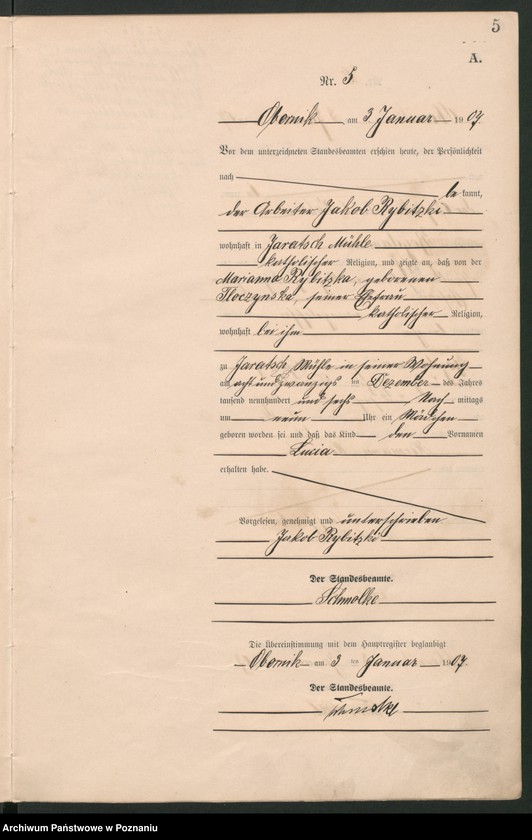 5
A.
Nr. 5
Obornik am 3 Januar 1907.
Vor dem unterzeichneten Standesbeamten erschien heute, der Persönlichkeit
nach
be kannt,
der Arbeiter Jakob Rybitzki
wohnhaft in Jaratsch Mühle
katholischer Religion, und zeigte an, daß von der
Marianna Rybitzka, geborenen
Tloczynska, seiner Ehefrau
katholischer Religion,
wohnhaft bei ihm
zu Jaratsch Mühle in seiner Wohnung
am acht und zwanzigs ten Dezember des Jahres
tausend neunhundert und sechs Nach mittags
um neun Uhr ein Mädchen
geboren worden sei und daß das Kind den Vornamen
Lucia
erhalten habe.
Vorgelesen, genehmigt und unterschrieben
Jakob Rybitzki
Der Standesbeamte.
Schmolke
Die Übereinstimmung mit dem Hauptregister beglaubigt
Obornik am 3 ten Januar 1907.
Der Standesbeamte.
Schmolke
Archiwum Państwowe w Poznaniu